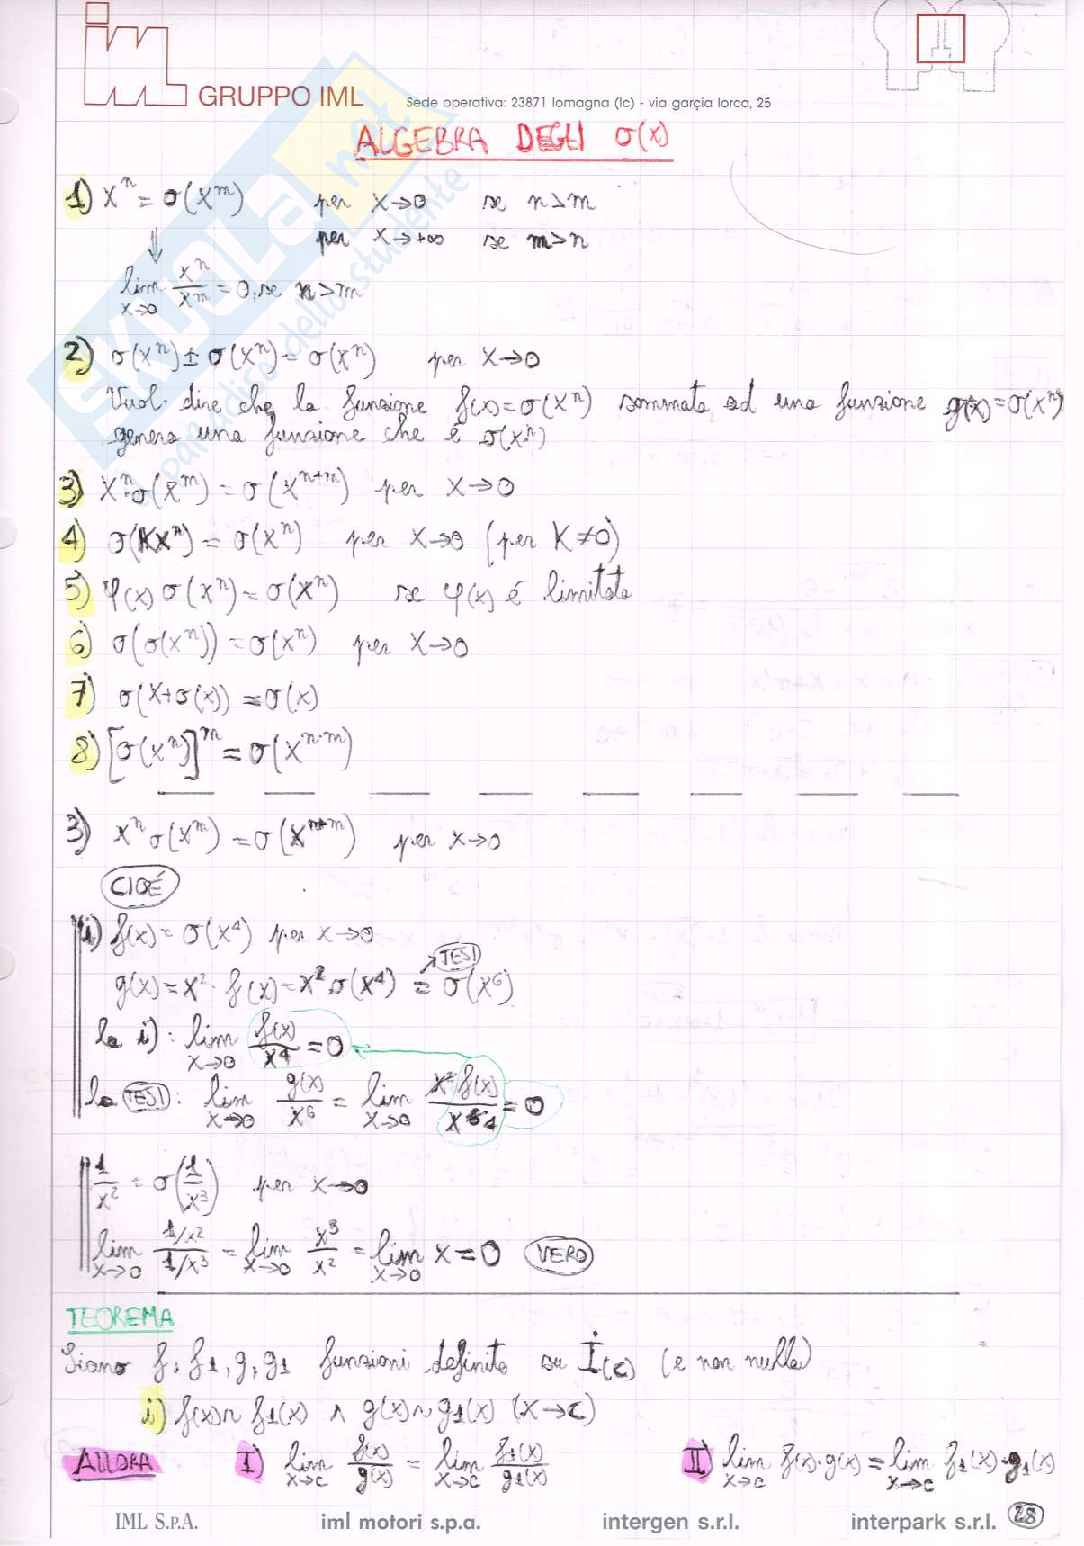 iml GRUPPO IML Sede operativa: 23871 lomagna (lc) - via garçia lorca, 25
ALGEBRA DEGLI σ(x)
1) x^n = σ(x^m) per x→0 se n>m
per x→+∞ se m>n
⇓
lim x→0 x^n/x^m = 0, se n>m
2) σ(x^n) ± σ(x^n) = σ(x^n) per x→0
Vuol dire che la funzione f(x) = σ(x^n) sommata ad una funzione g(x) = σ(x^n)
genera una funzione che è σ(x^n)
3) x^n·σ(x^m) = σ(x^{n+m}) per x→0
4) σ(Kx^n) = σ(x^n) per x→0 (per K≠0)
5) φ(x) σ(x^n) = σ(x^n) se φ(x) é limitata
6) σ(σ(x^n)) = σ(x^n) per x→0
7) σ(x+σ(x)) = σ(x)
8) [σ(x^n)]^m = σ(x^{n·m})
3) x^n σ(x^m) = σ(x^{n+m}) per x→0
CIOÉ
i) f(x) = σ(x^4) per x→0
TESI
g(x) = x^2 · f(x) = x^2 · σ(x^4) = σ(x^6)
la i): lim x→0 f(x)/x^4 = 0
la TESI: lim x→0 g(x)/x^6 = lim x→0 x^2 f(x)/x^6 4 = 0
1/x^2 = σ(1/x^3) per x→0
lim x→0 (1/x^2)/(1/x^3) = lim x→0 x^3/x^2 = lim x→0 x = 0 VERO
TEOREMA
Siano f, f1, g, g1 funzioni definite su İ(c) (e non nulle)
i) f(x) ~ f1(x) ∧ g(x) ~ g1(x) (x→c)
ALLORA I) lim x→c f(x)/g(x) = lim x→c f1(x)/g1(x) II) lim x→c f(x)·g(x) = lim x→c f1(x)·g1(x)
IML S.p.A. iml motori s.p.a. intergen s.r.l. interpark s.r.l. 28
SKUOLA.net
paradiso dello studente